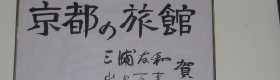 京都の旅館
三浦友和
賀